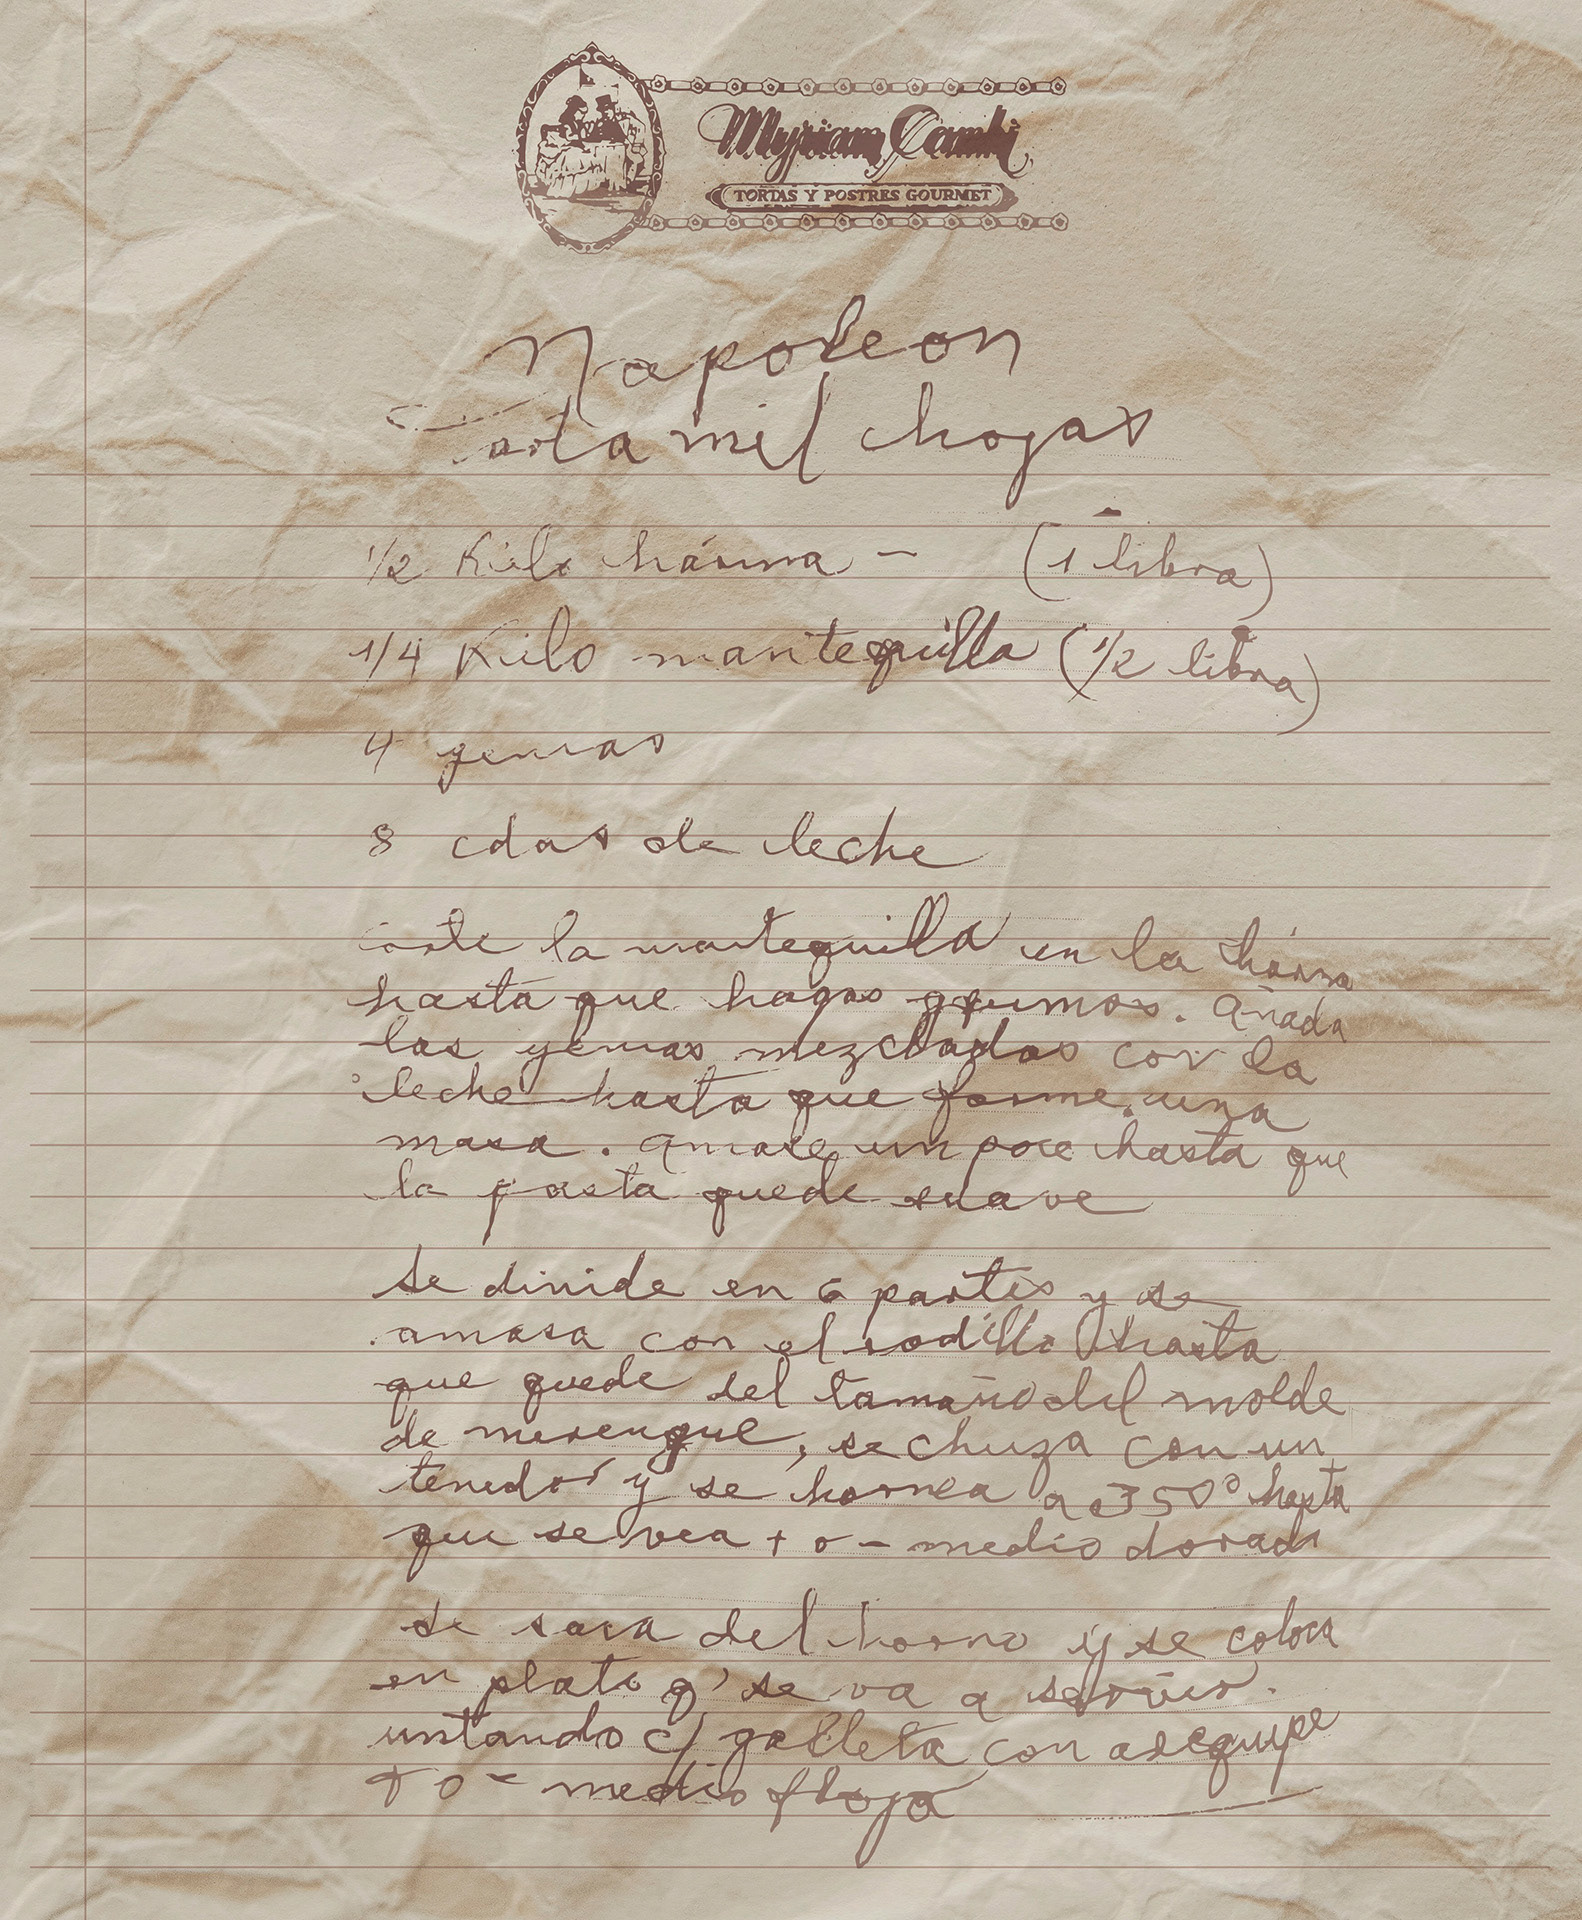 Myriam Camhi
TORTAS Y POSTRES GOURMET
Napoleon
Torta mil hojas
1/2 Kilo harina - (1 libra)
1/4 Kilo mantequilla (1/2 libra)
4 yemas
8 cdas de leche
corte la mantequilla en la harina
hasta que hagas grumos. Añada
las yemas mezcladas con la
leche hasta que forme una
masa. amase un poco hasta que
la pasta quede suave
se divide en 6 partes y se
amasa con el rodillo hasta
que quede del tamaño del molde
de merengue, se chuza con un
tenedor y se hornea a 350° hasta
que se vea + o - medio dorada
se saca del horno y se coloca
en plato q' se va a servir.
untando c/ galleta con arequipe
+ o - medio floja